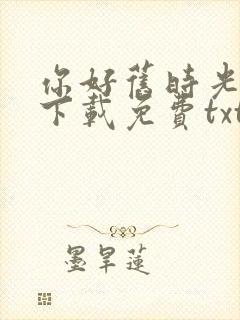 你好舊時光
下載免費txt
墨旱蓮